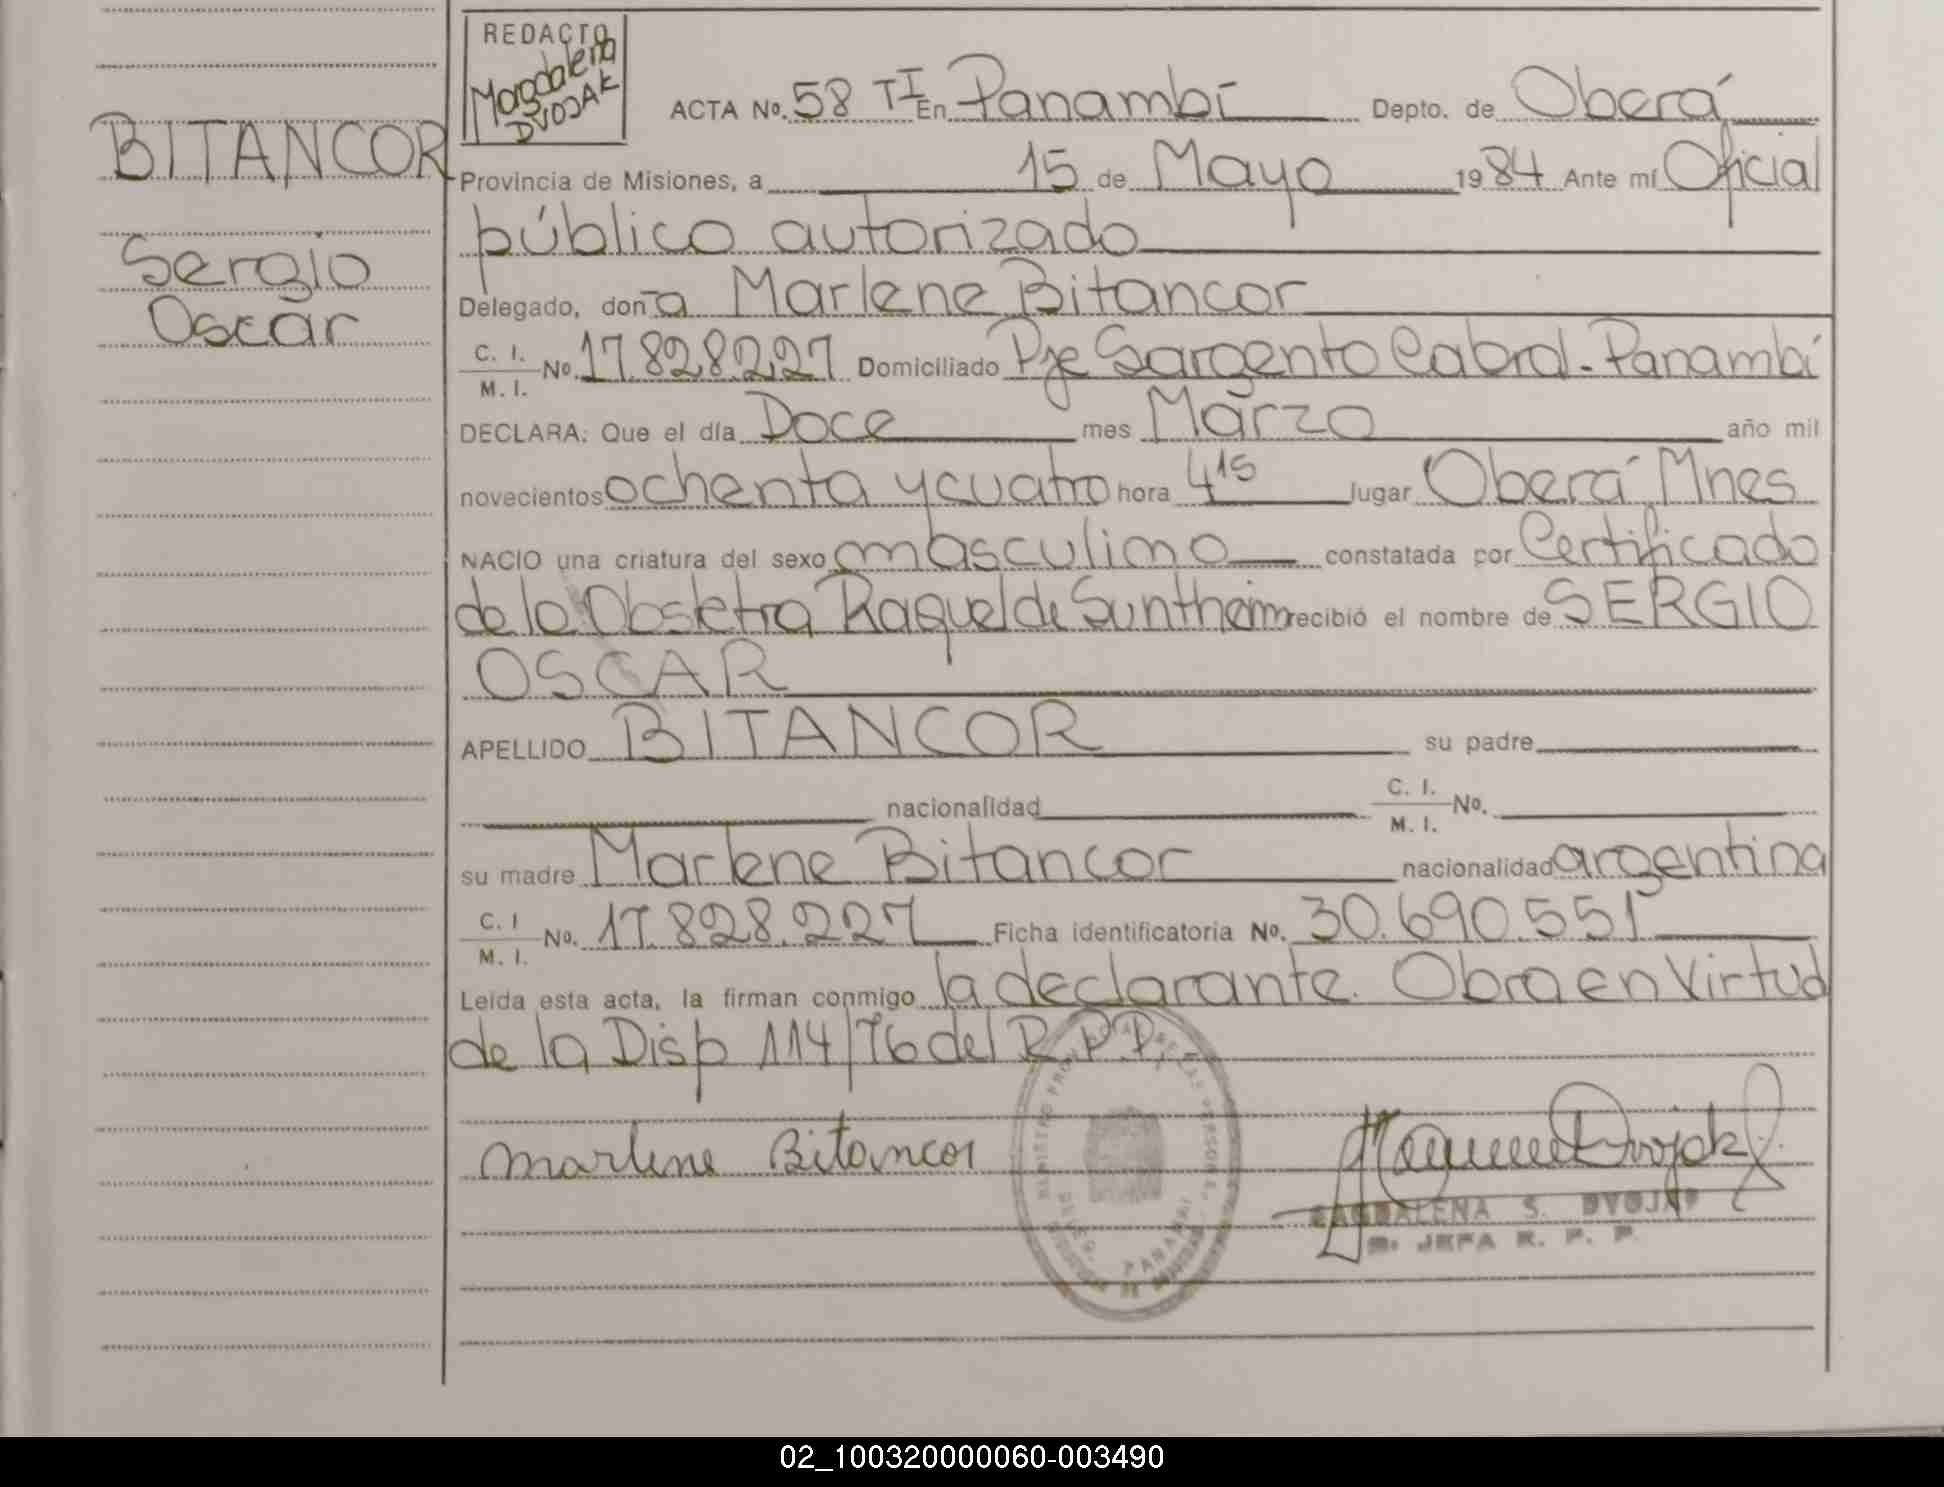 REDACTO
Magdalena
DVOJAK
BITANCOR
Sergio
Oscar
ACTA No. 58 TI En Panambí Depto. de Oberá
Provincia de Misiones, a 15 de Mayo 1984 Ante mí Oficial
público autorizado
Delegado, don a Marlene Bitancor
C. I.
M. I. No. 17.828.227 Domiciliado Pje Sargento Cabral - Panambí
DECLARA: Que el día Doce mes Marzo año mil
novecientos ochenta y cuatro hora 4 15 lugar Oberá Mnes
NACIO una criatura del sexo masculino constatada por Certificado
de la Obstetra Raquel de Sunthein recibió el nombre de SERGIO
OSCAR
APELLIDO BITANCOR su padre
nacionalidad C. I.
M. I. No.
su madre Marlene Bitancor nacionalidad argentina
C. I
M. I. No. 17.828.227 Ficha identificatoria No. 30.690.551
Leída esta acta, la firman conmigo la declarante. Obra en Virtud
de la Disp 114/76 del R.P.P.
Marlene Bitancor
MAGDALENA S. DVOJAK
JEFA R. P. P.
PANAMBI
02_100320000060-003490